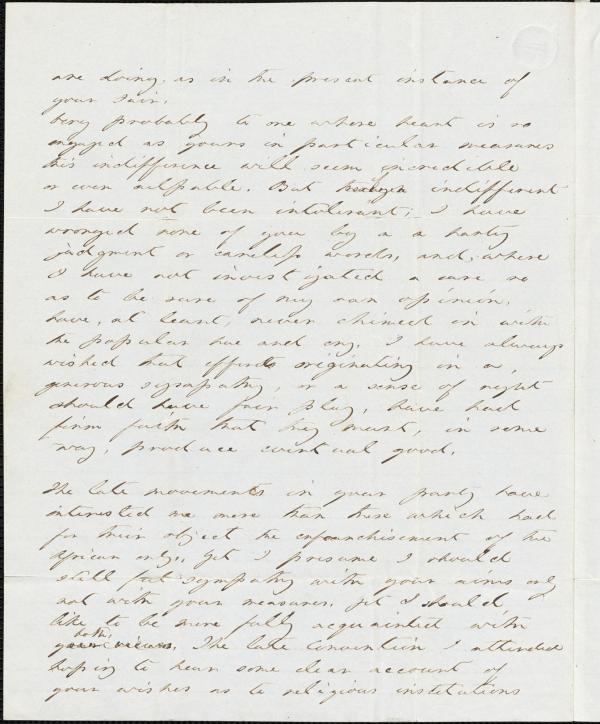 are doing, as in the present instance of
your Fair.
Very probably to one whose heart is so
engaged as yours in particular measures
this indifference will seem incredible
or even culpable. But though indifferent
I have not been intolerant; I have
wronged none of you by a hasty
judgment or careless words, and, where
I have not investigated a case so
as to be sure of my own opinion,
have, at least, never chimed in with
the popular hue and cry. I have always
wished that efforts originating in a
generous sympathy, or a sense of right
should have fair play, have had
firm faith that they must, in some
way, produce eventual good.
The late movements in your party have
interested me more than those which had
for their object the enfranchisement of the
African only. Yet I presume I should
still feel sympathy with your aims only
not with your measures. Yet I should
like to be more fully acquainted with
both. The late convention I attended
hoping to hear some clear account of
your wishes as to religious institutions